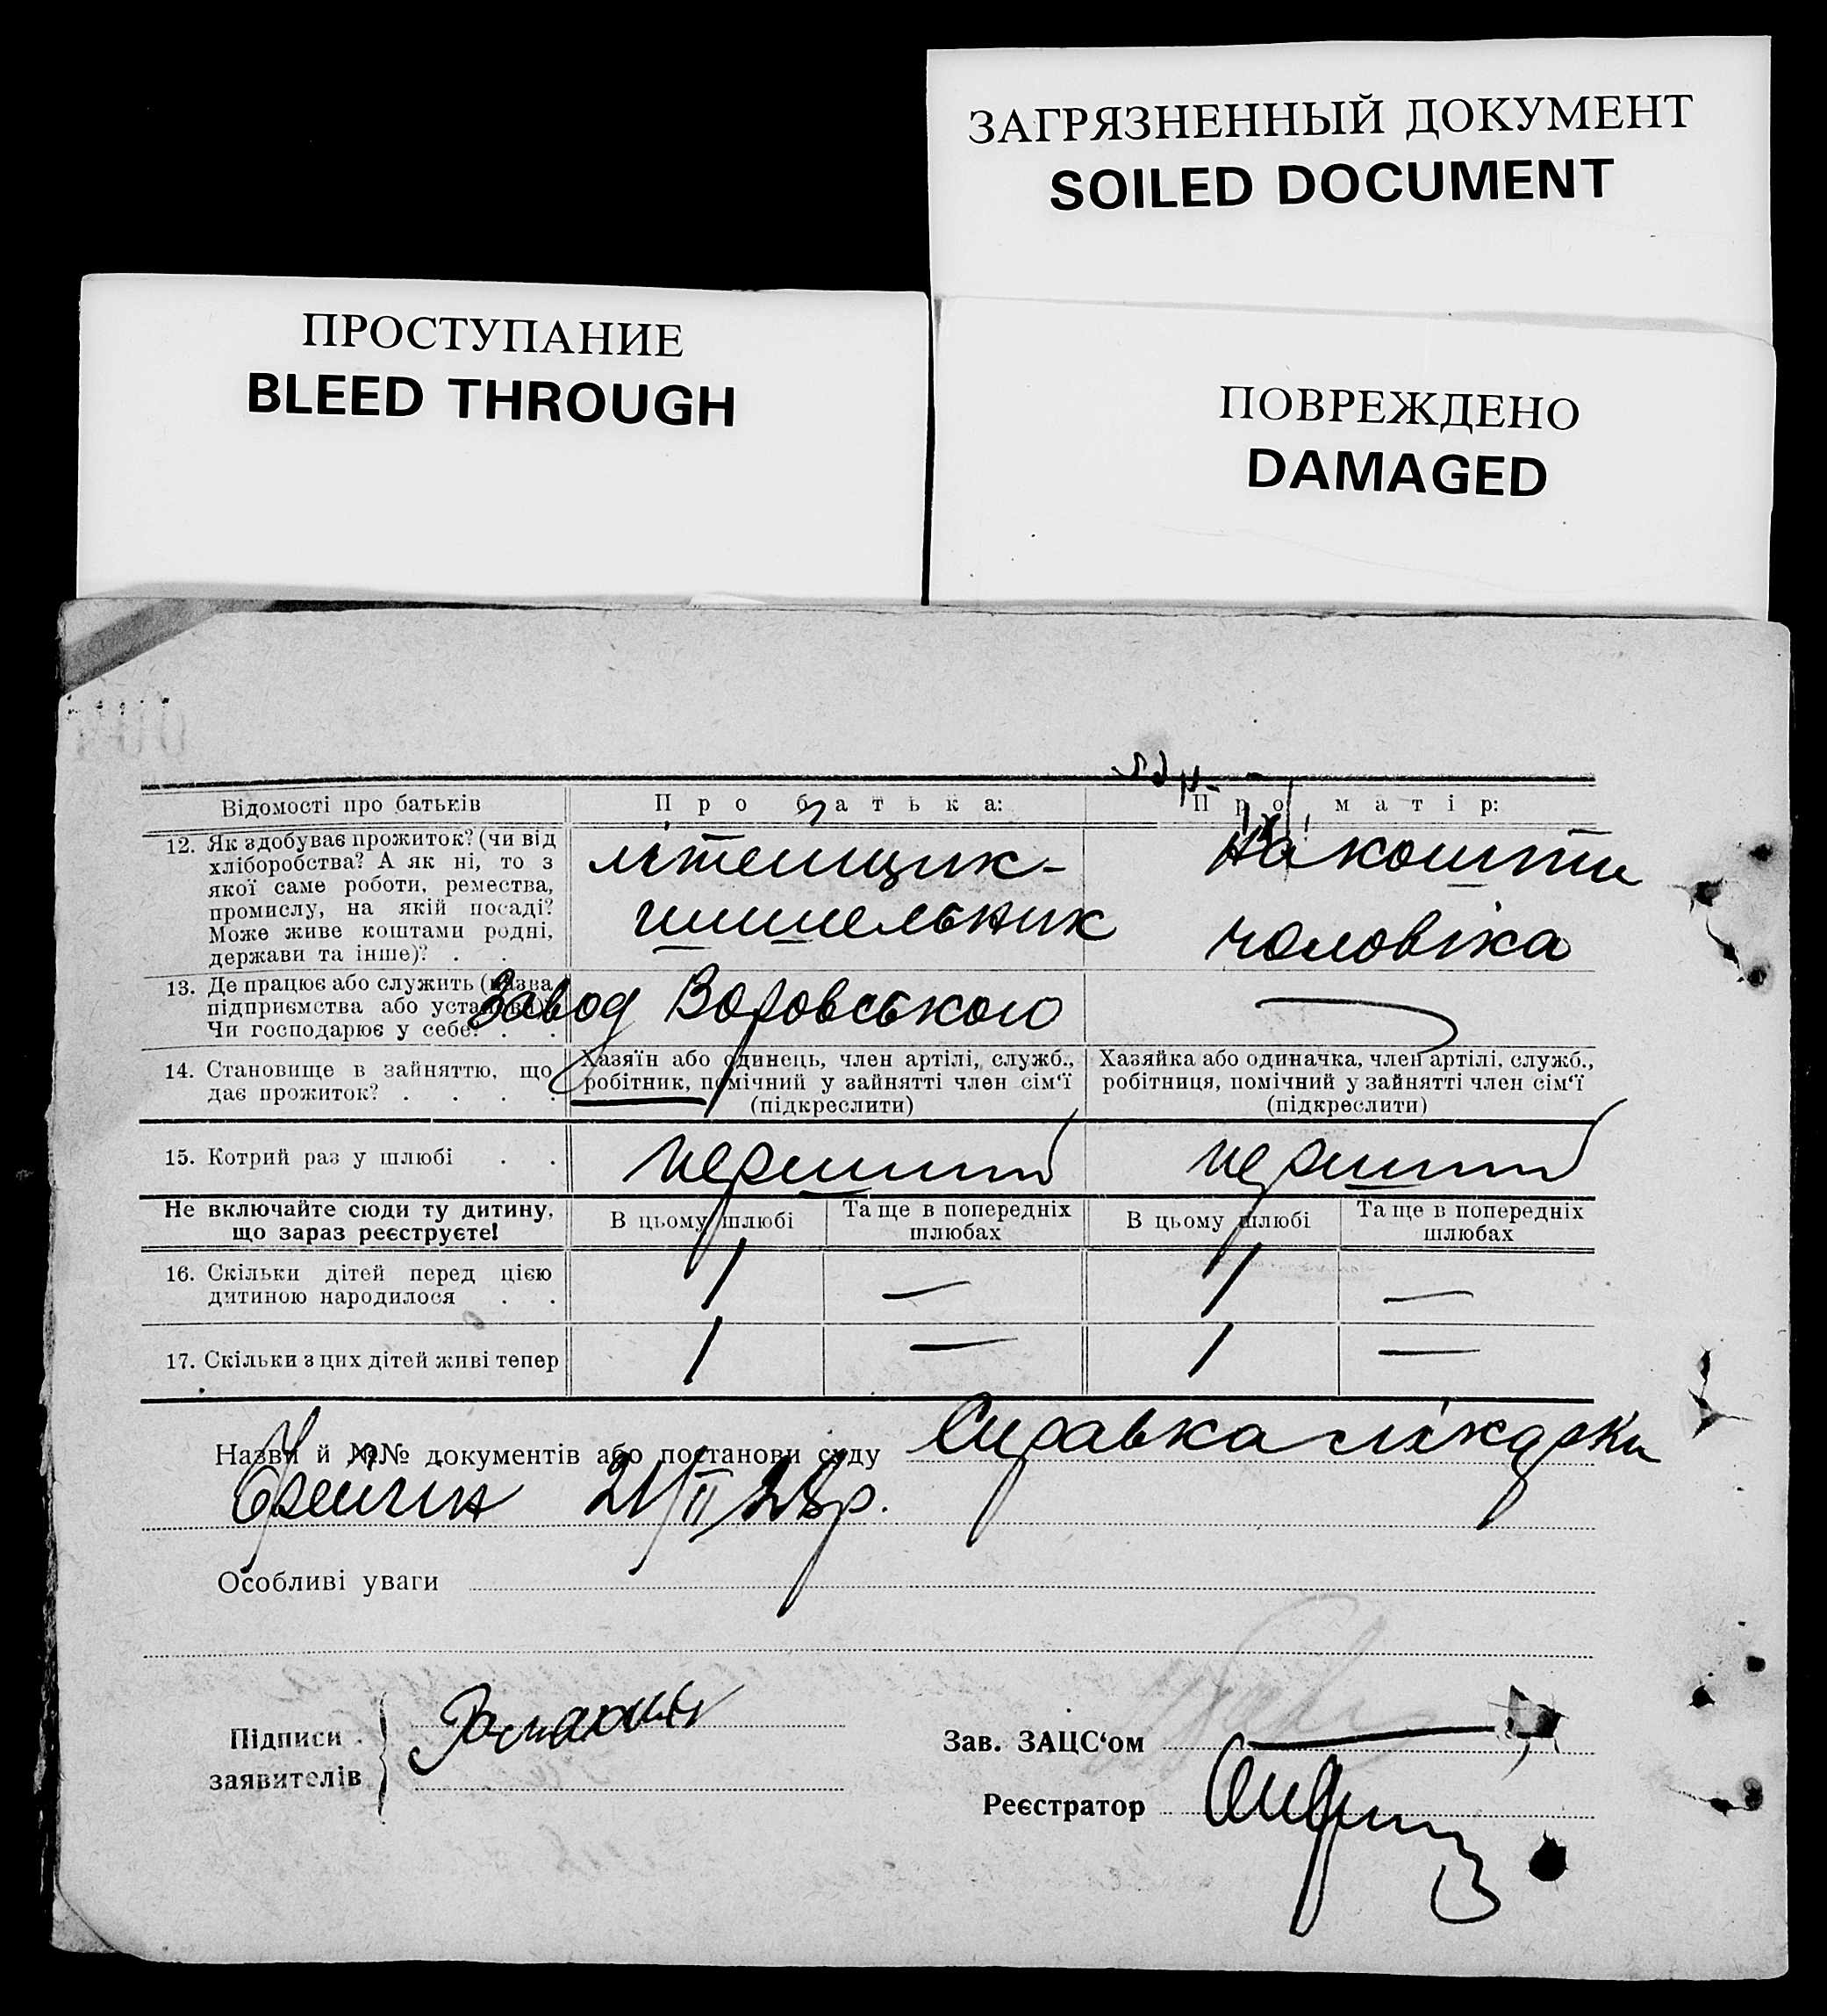 ЗАГРЯЗНЕННЫЙ ДОКУМЕНТ
SOILED DOCUMENT
ПРОСТУПАНИЕ
BLEED THROUGH
ПОВРЕЖДЕНО
DAMAGED
Відомості про батьків
Про батька:
Про матір:
12. Як здобуває прожиток? (чи від
хліборобства? А як ні, то з
якої саме роботи, ремества,
промислу, на якій посаді?
Може живе коштами родні,
держави та інше)? . .
шишельник
На кошти
чоловіка
13. Де працює або служить (назва
підприємства або установи)?
Чи господарює у себе? . .
Завод Воровського
—
14. Становище в зайняттю, що
дає прожиток? . . . .
Хазяїн або одинець, член артілі, служб.,
робітник, помічний у зайнятті член сім‘ї
(підкреслити)
Хазяйка або одиначка, член артілі, служб.,
робітниця, помічний у зайнятті член сім‘ї
(підкреслити)
15. Котрий раз у шлюбі . .
перший
перший
Не включайте сюди ту дитину,
що зараз реєструєте!
В цьому шлюбі
Та ще в попередніх
шлюбах
В цьому шлюбі
Та ще в попередніх
шлюбах
16. Скільки дітей перед цією
дитиною народилося . .
1
—
1
—
17. Скільки з цих дітей живі тепер
1
—
1
—
Назви й №№ документів або постанови суду Справка
21/II 28р.
Особливі уваги
Підписи
заявителів
Зав. ЗАЦС‘ом
Реєстратор